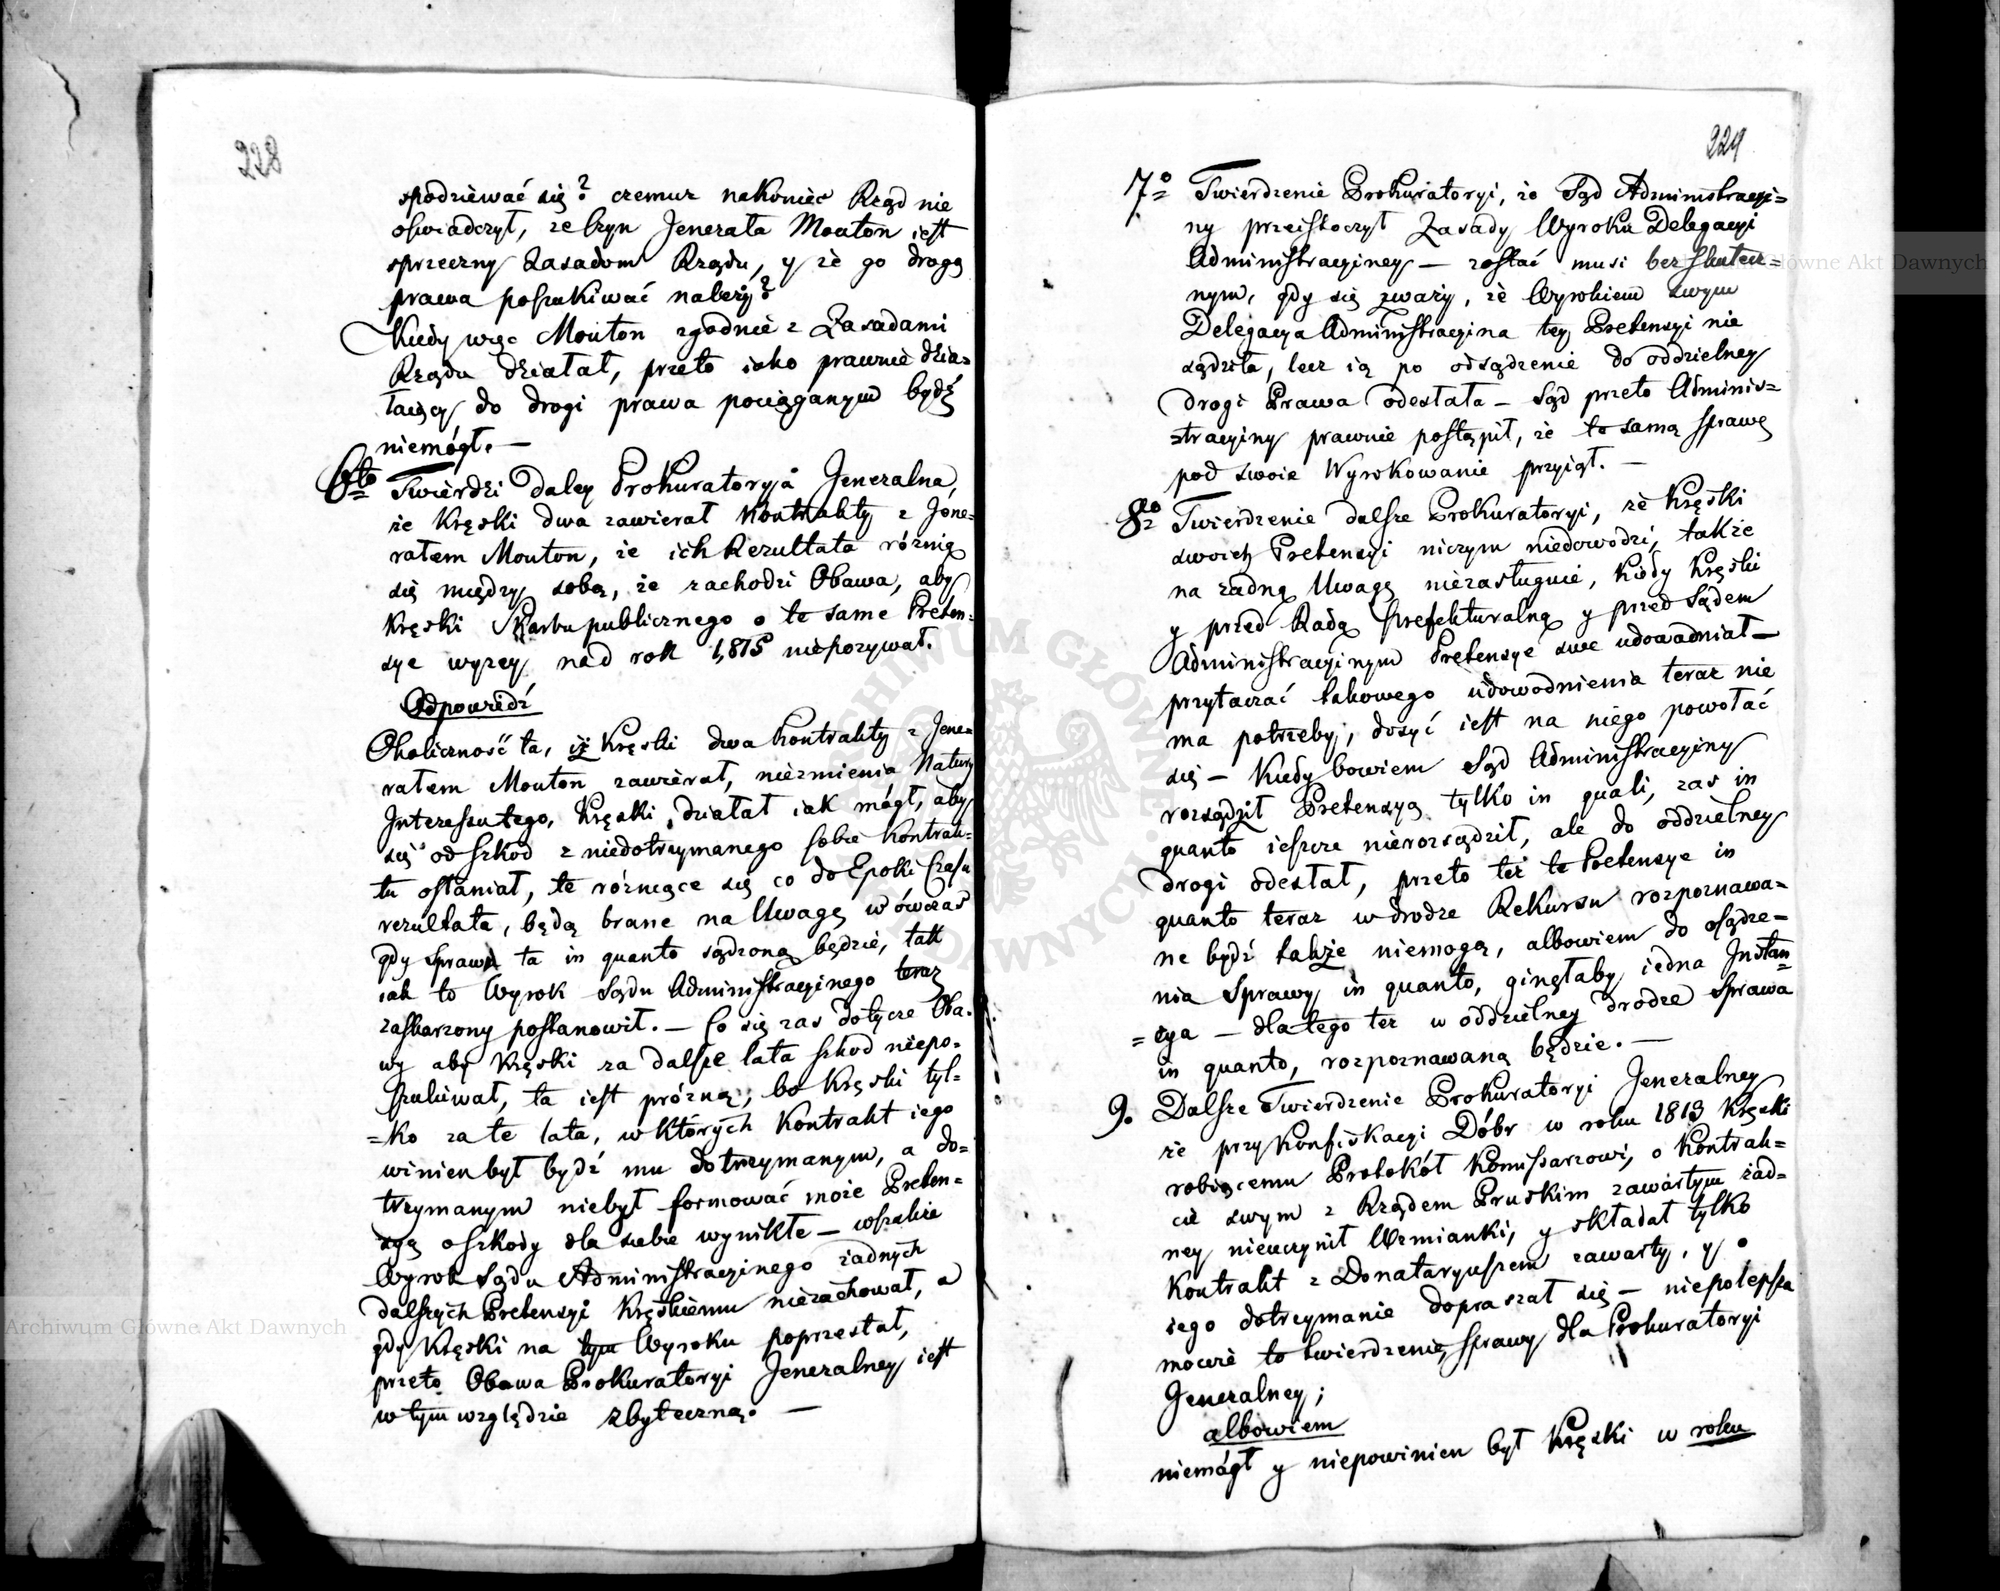 228
spodziéwać się? czemuż nakoniec Rząd nie
oświadczył, że czyn Jenerała Mouton iest
sprzeczny Zasadom Rządu, y że go drogą
prawa poszukiwać należy?
Kiedy więc Mouton zgodnie z Zasadami
Rządu działał, przeto iako prawnie dzia=
łaiący do drogi prawa pociąganym bydź
niemógł. —
6to Twierdzi daley Prokuratorya Jeneralna,
że Kręski dwa zawierał Kontrakty z Jene=
rałem Mouton, że ich Rezultata różnią
się między sobą, że zachodzi Obawa, aby
Kręski Skarbu publicznego o te same Preten=
sye wyżey nad rok 1,815 niepozywał.
Odpowiedź
Okoliczność ta, iż Kręski dwa Kontrakty z Jene=
rałem Mouton zawiérał, niezmienia Natury
Interessu tego, Kręski działał iak mógł, aby
się od szkód z niedotrzymanego sobie Kontrak=
tu osłaniał, te różniące się co do Epoki Czasu
rezultata, będą brane na Uwagę wówczas
gdy Sprawa ta in quanto sądzoną będzie, tak
iak to Wyrok Sądu Administracyinego teraz
zaskarzony postanowił. — Co się zas dotycze Oba=
wy aby Kręski za dalsze lata szkod niepo=
szukiwał, ta iest próżną; bo Kręski tyl=
=ko za te lata, w których Kontrakt iego
winien był bydź mu dotrzymanym, a do=
trzymanym niebył formować może Preten=
syą o szkody dla siebie wynikłe — wszakże
Wyrok Sądu Administracyinego żadnych
dalszych Pretensyi Kręskiemu niezachował, a
gdy Kręski na tym Wyroku poprzestał,
przeto Obawa Prokuratoryi Jeneralney iest
w tym względzie zbyteczną. —
229
7o Twierdzenie Prokuratoryi, że Sąd Administracyi=
ny przeistoczył Zasady Wyroku Delegacyi
Administracyiney — zostać musi bezskutecz=
nym, gdy się zważy, że Wyrokiem swym
Delegacya Administracyina tey Pretensyi nie
sądziła, lecz ią po osądzenie do oddzielney
drogi Prawa odesłała — Sąd przeto Adminis=
=tracyiny prawnie postąpił, że tę samą Sprawę
pod swoie Wyrokowanie przyiął. —
8o Twierdzenie dalsze Prokuratoryi, że Kręski
swoich Pretensyi niczym niedowodzi, także
na żadną Uwagę niezasługuie, kiedy Kręski
y przed Radą Prefekturalną y przed Sądem
Administracyinym Pretensye swe udowadniał —
przytaczać takowego udowodnienia teraz nie
ma potrzeby; dosyć iest na niego powołać
się — Kiedy bowiem Sąd Administracyiny
rozsądził Pretensyą tylko in quali, zas in
quanto ieszcze nierozsądził, ale do oddzielney
drogi odesłał, przeto też te Pretensye in
quanto teraz w drodze Rekursu rozpoznawa=
ne bydź także niemogą, albowiem do osądze=
nia Sprawy in quanto, ginęłaby iedna Instan=
=cya — dla tego też w oddzielney drodze Sprawa
in quanto, rozpoznawaną będzie. —
9. Dalsze Twierdzenie Prokuratoryi Jeneralney
że przy Konfiskacyi Dóbr w roku 1813 Kręski
robiącemu Protokół Kommissarzowi, o Kontrak=
cie swym z Rządem Pruskim zawartym żad=
ney nieuczynił Wzmianki, y składał tylko
Kontrakt z Donataryuszem zawarty, y o
iego dotrzymanie dopraszał się — niepolepsza
mocnie to twierdzenie, Sprawy dla Prokuratoryi
Jeneralney;
albowiem
niemógł y niepowinien był Kręski w roku
Archiwum Główne Akt Dawnych
Archiwum Główne Akt Dawnych
ARCHIWUM GŁÓWNE AKT DAWNYCH